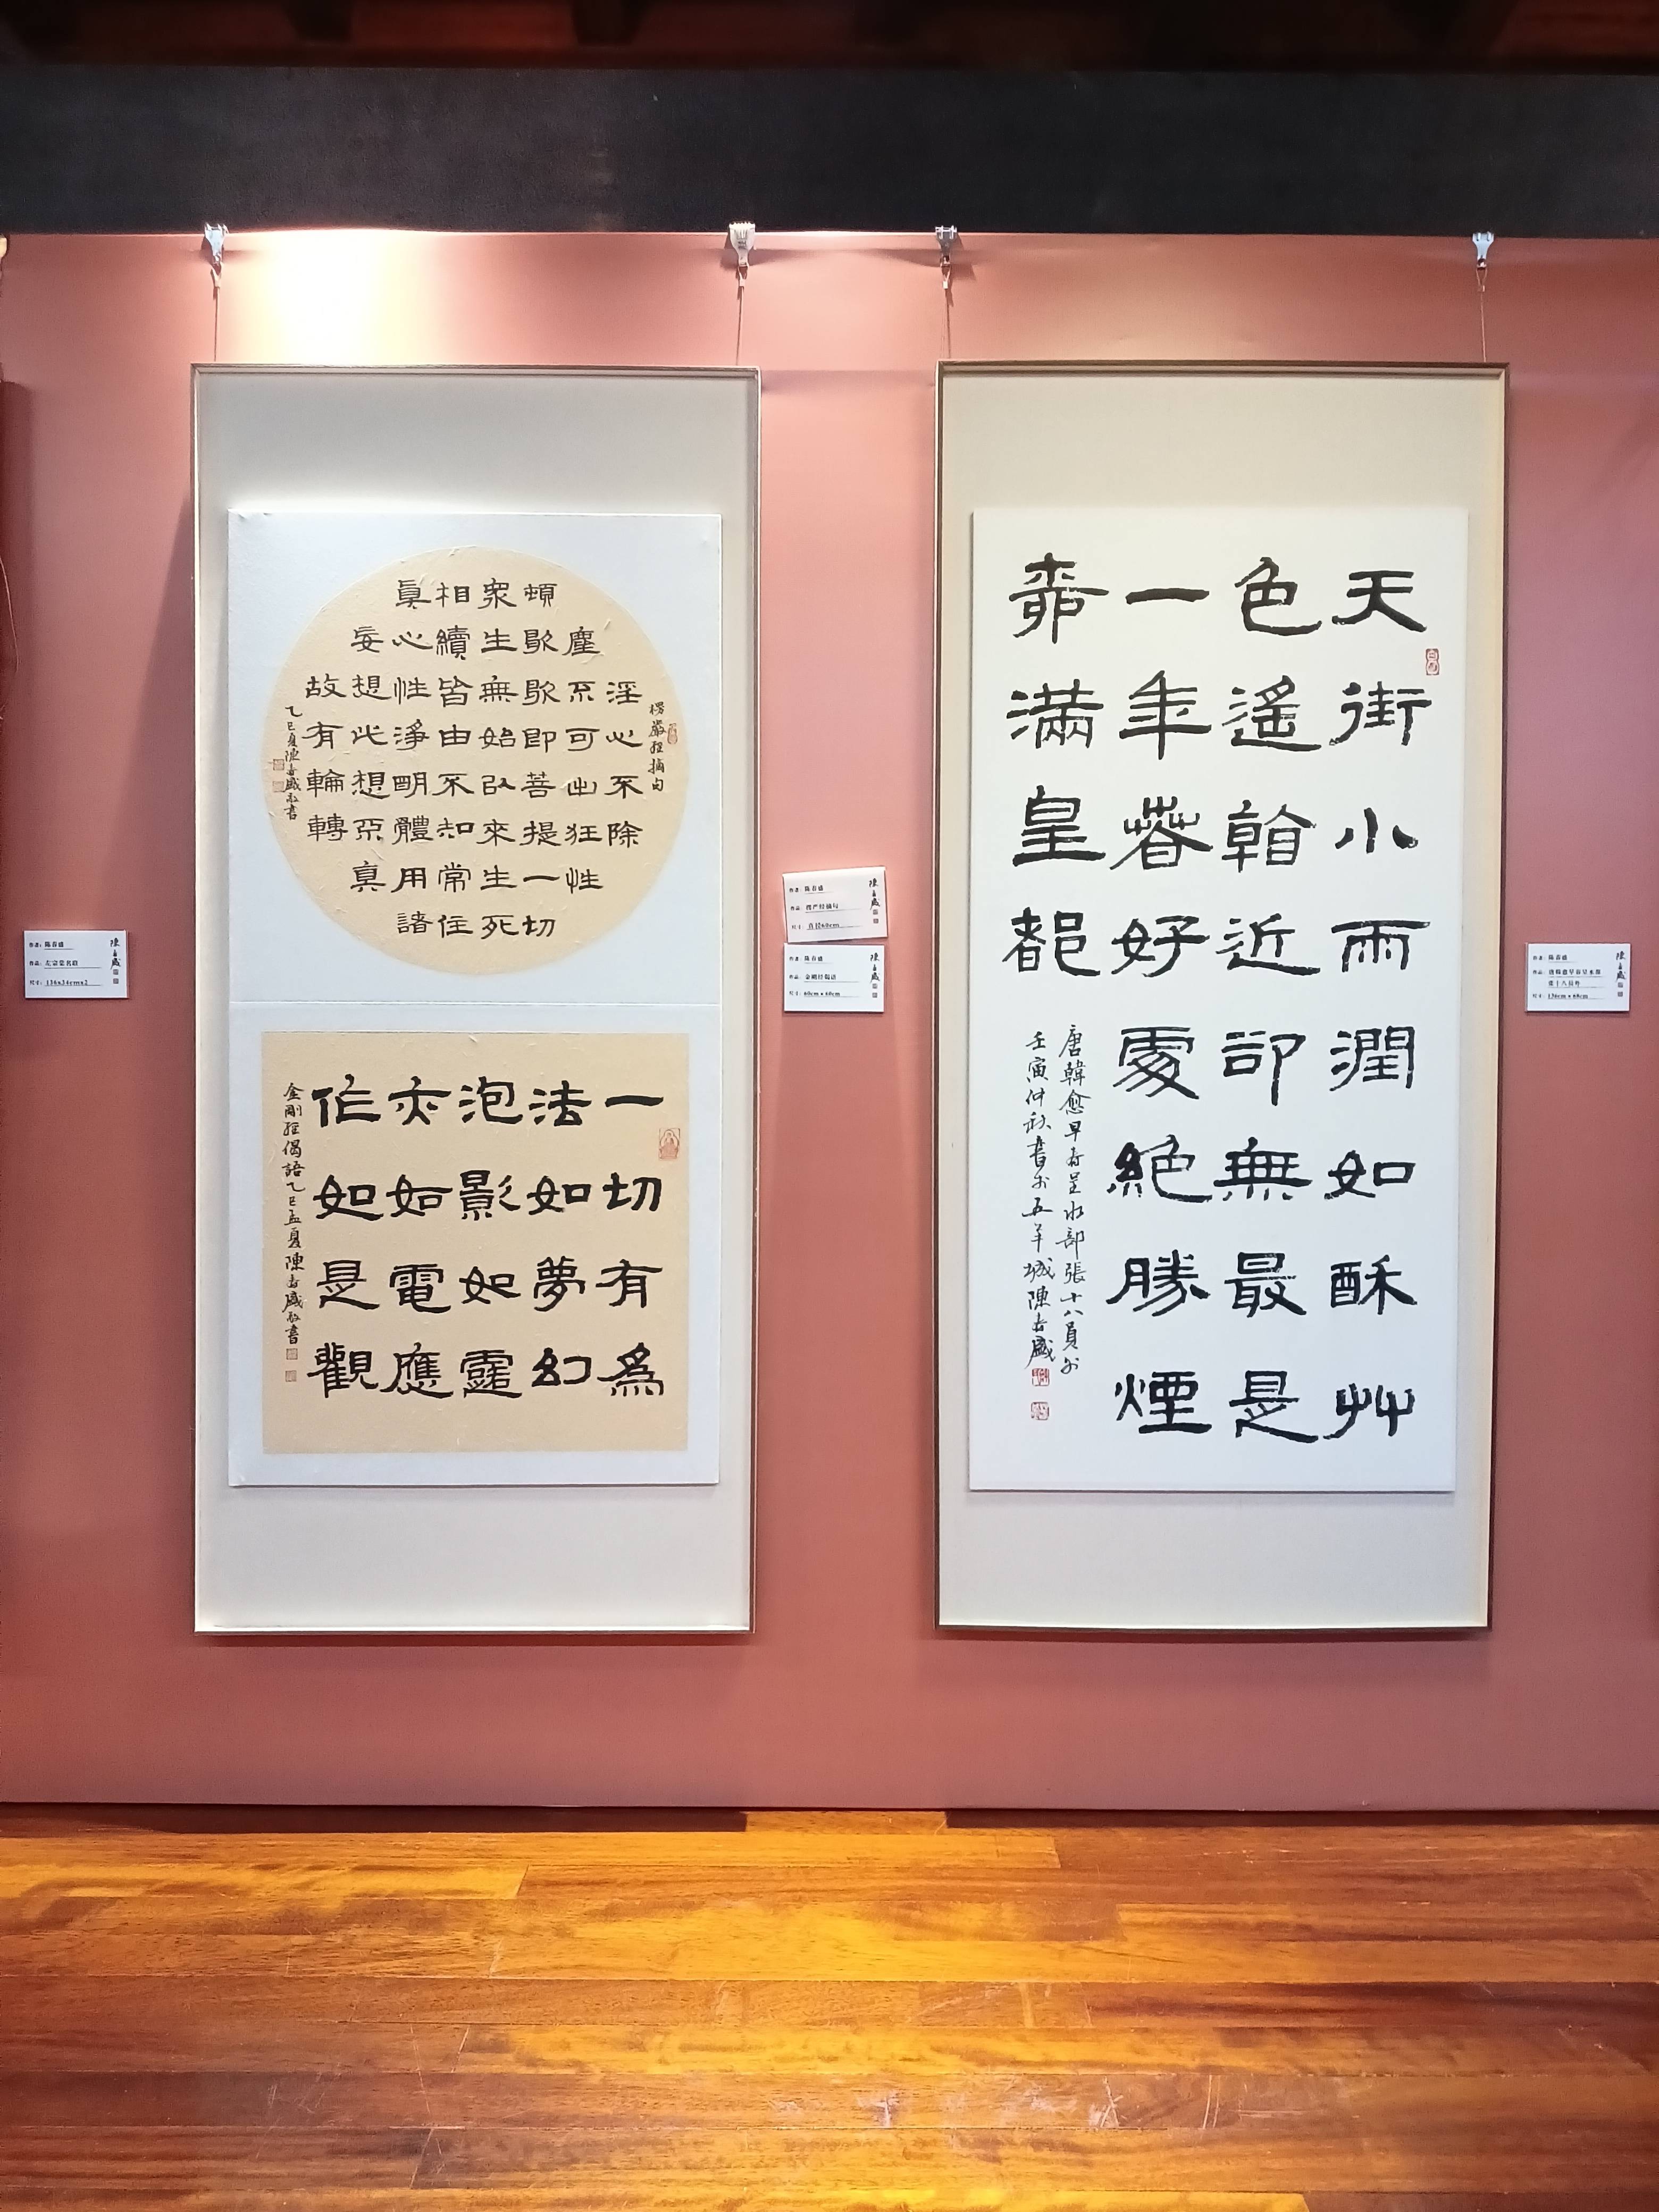 天街小雨潤如酥艸
色遙看近卻無最是
一年春好處絕勝煙
柳滿皇都
唐韓愈早春呈水部張十八員外
壬寅仲秋書於五羊城陳春盛
楞嚴經摘句
淫心不除
塵不可出狂性
頓歇歇即菩提一切
眾生無始以來生死
相續皆由不知常住
真心性淨明體用諸
妄想此想不真
故有輪轉
乙巳夏陳春盛敬書
一切有為
法如夢幻
泡影如露
亦如電應
作如是觀
金剛經偈語乙巳孟夏陳春盛敬書
作者：陈春盛
作品：左宗棠名联
尺寸：136x34cmx2
陳春盛
作者：陈春盛
作品：楞严经摘句
尺寸：直径60cm
陳春盛
作者：陈春盛
作品：金刚经偈语
尺寸：60cm x 60cm
陳春盛
作者：陈春盛
作品：唐韩愈早春呈水部
张十八员外
尺寸：136cm x 68cm
陳春盛